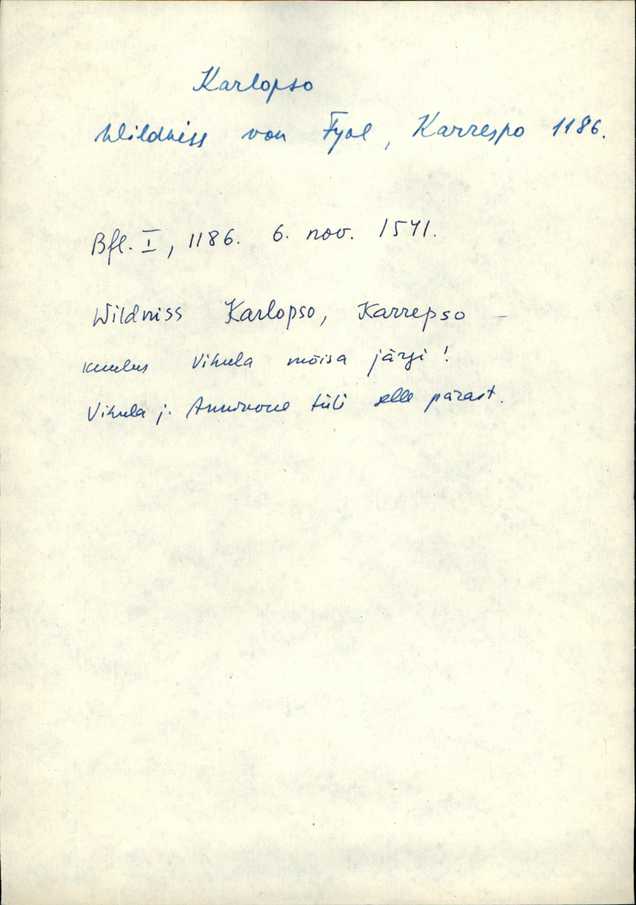 Karlopso
Wildniss von Fyol, Karrespo 1186.
Bfl. I, 1186. 6. nov. 1541.
Wildniss Karlopso, Karrepso –
kuulus Vihula mõisa järgi!
Vihula j. tüli selle pärast.